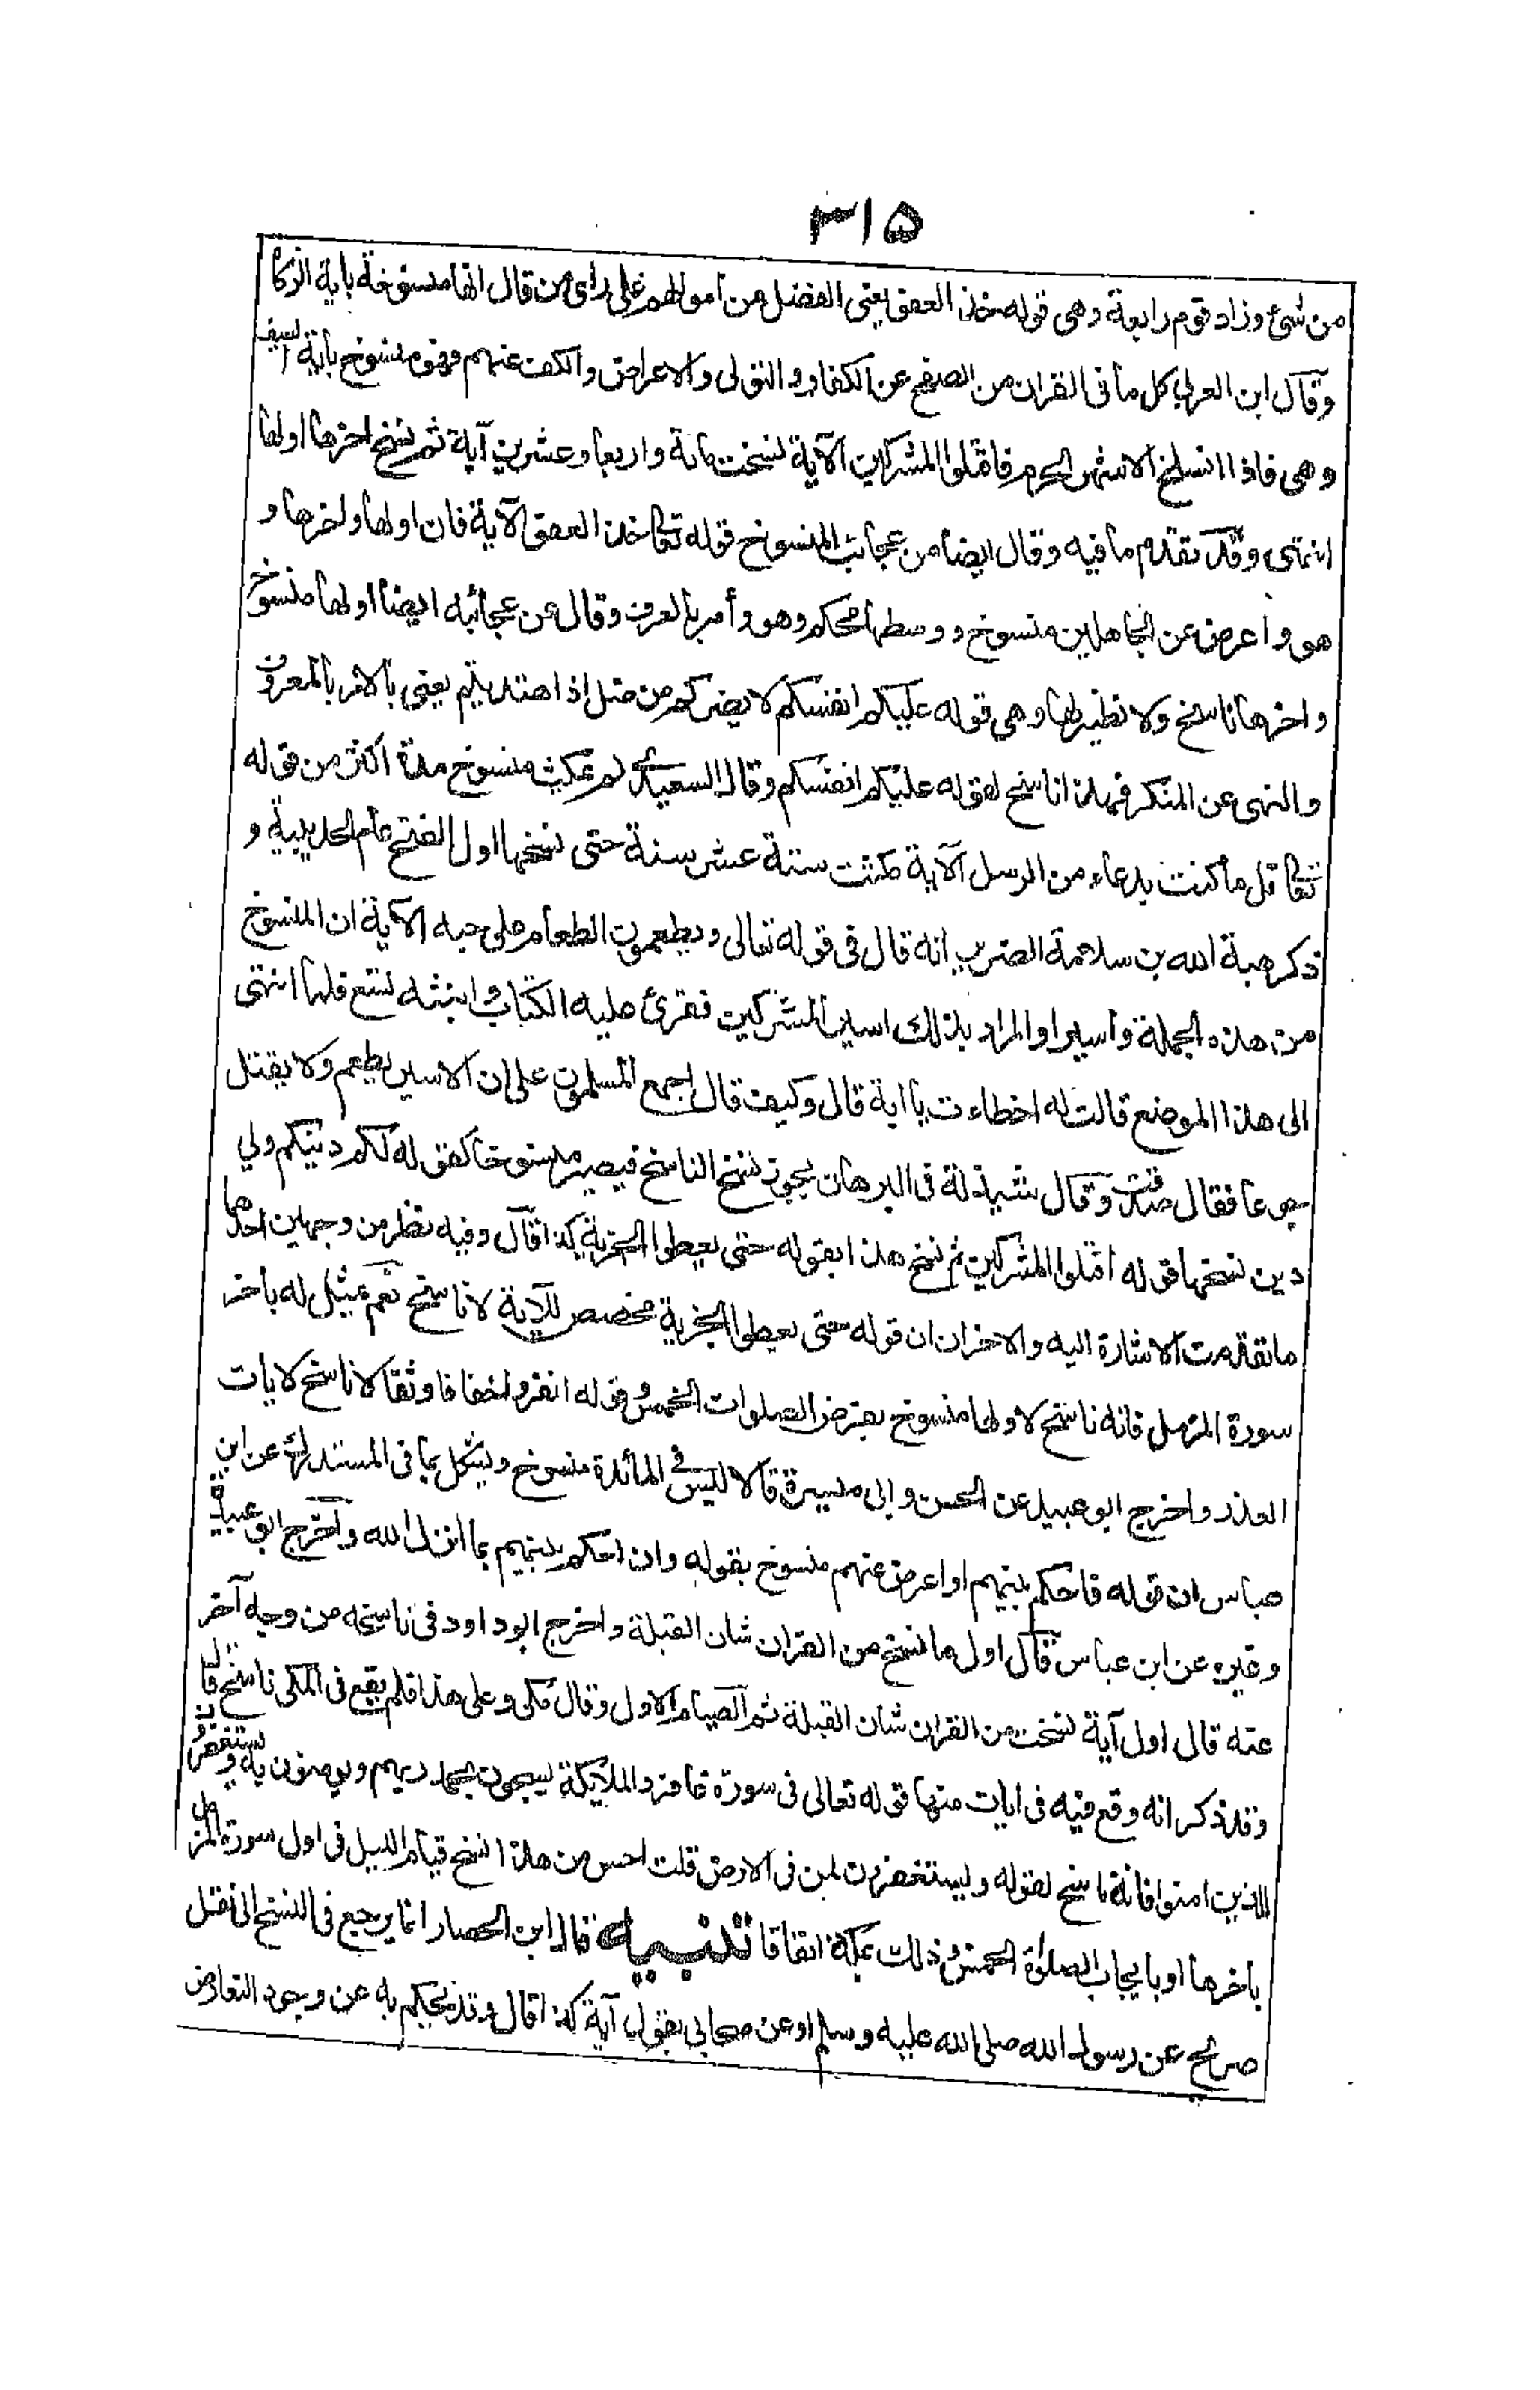 ٣١٥
من شئ وزاد قوم رابعة وهى قوله خذ العفو يعنى الفضل من اموالهم على راى من قال انها منسوخة باية الزكا
وقال ابن العربي كل ما فى القران من الصفح عن الكفار والتولى والاعراض والكف عنهم فهو منسوخ بآية السيف
وهى فاذا انسلخ الاشهر الحرم فاقتلوا المشركين الآية نسخت مائة واربعا وعشرين آية ثم نسخ اخرها اولها
انتهى وقد تقدم ما فيه وقال ايضا من عجائب المنسوخ قوله تعا خذ العفو الآية فان اولها واخرها و
هو واعرض عن الجاهلين منسوخ ووسطها محكم وهو وأمر بالعرف وقال من عجائبه ايضا اولها منسوخ
واخرها ناسخ ولا نظير لها وهى قوله عليكم انفسكم لا يضركم من ضل اذا اهتديتم يعنى بالامر بالمعروف
والنهى عن المنكر فهذا ناسخ لقوله عليكم انفسكم وقال السعيدى لم يمكث منسوخ مدة اكثر من قوله
تعا قل ما كنت بدعاء من الرسل الآية مكثت ستة عشر سنة حتى نسخها اول الفتح عام الحديبية و
ذكر هبة الله بن سلامة الضرير انه قال فى قوله تعالى ويطعمون الطعام على حبه الآية ان المنسوخ
من هذه الجملة وأسيرا والمراد بذلك اسير المشركين فقرئ عليه الكتاب وابنته تسمع فلما انتهى
الى هذا الموضع قالت له اخطاءت يا ابة قال وكيف قال اجمع المسلمون على ان الاسير يطعم ولا يقتل
جوعا فقال صدقت وقال شيذلة فى البرهان يجوز نسخ الناسخ فيصير منسوخا كقوله لكم دينكم ولي
دين نسخها قوله اقتلوا المشركين ثم نسخ هذا بقوله حتى يعطوا الجزية كذا قال وفيه نظر من وجهين احدهما
ما تقدمت الاشارة اليه والاخران ان قوله حتى يعطوا الجزية مخصص للآية لا ناسخ نعم يمثل له بآخر
سورة المزمل فانه ناسخ لاولها منسوخ بفرض الصلوات الخمس وقوله انفروا خفافا وثقالا ناسخ لايات
العذر واخرج ابو عبيد عن الحسن وابى ميسرة قالا ليس فى المائدة منسوخ ويشكل بما فى المستدرك عن ابن
عباس ان قوله فاحكم بينهم او اعرض عنهم منسوخ بقوله وان احكم بينهم بما انزل الله واخرج ابو عبيدة
وغيره عن ابن عباس قال اول ما نسخ من القران شان القبلة واخرج ابو داود فى ناسخه من وجه آخر
عنه قال اول آية نسخت من القران شان القبلة ثم الصيام الاول وقال مكى وعلى هذا فلم يقع فى المكى ناسخ قال
وقد ذكر انه وقع فيه فى ايات منها قوله تعالى فى سورة غافر والملائكة يسبحون بحمد ربهم ويومنون به ويستغفرون
للذين امنوا فانه ناسخ لقوله ويستغفرون لمن فى الارض قلت احسن من هذا نسخ قيام الليل فى اول سورة المزمل
بأخرها او بايجاب الصلوة الخمس وذلك بمكة اتفاقا تنبيه قال ابن الحصار انما يرجع فى النسخ الى نقل
صريح عن رسول الله صلى الله عليه وسلم او عن صحابى يقول آية كذا قال وقد يحكم به عن وجود التعارض